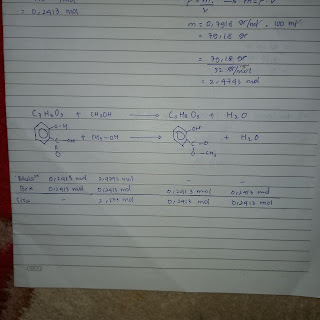 = 0,2413 mol
m = 0,7918 gr/ml . 100 ml
= 79,18 gr
= 79,18 gr
32 gr/mol
= 2,4743 mol
C7H6O3 + CH3OH → C8H8O3 + H2O
+ CH3-OH → + H2O
0,2413 mol 2,4743 mol - -
0,2413 mol 0,2413 mol 0,2413 mol 0,2413 mol
Sisa - 0,2413 mol 0,2413 mol